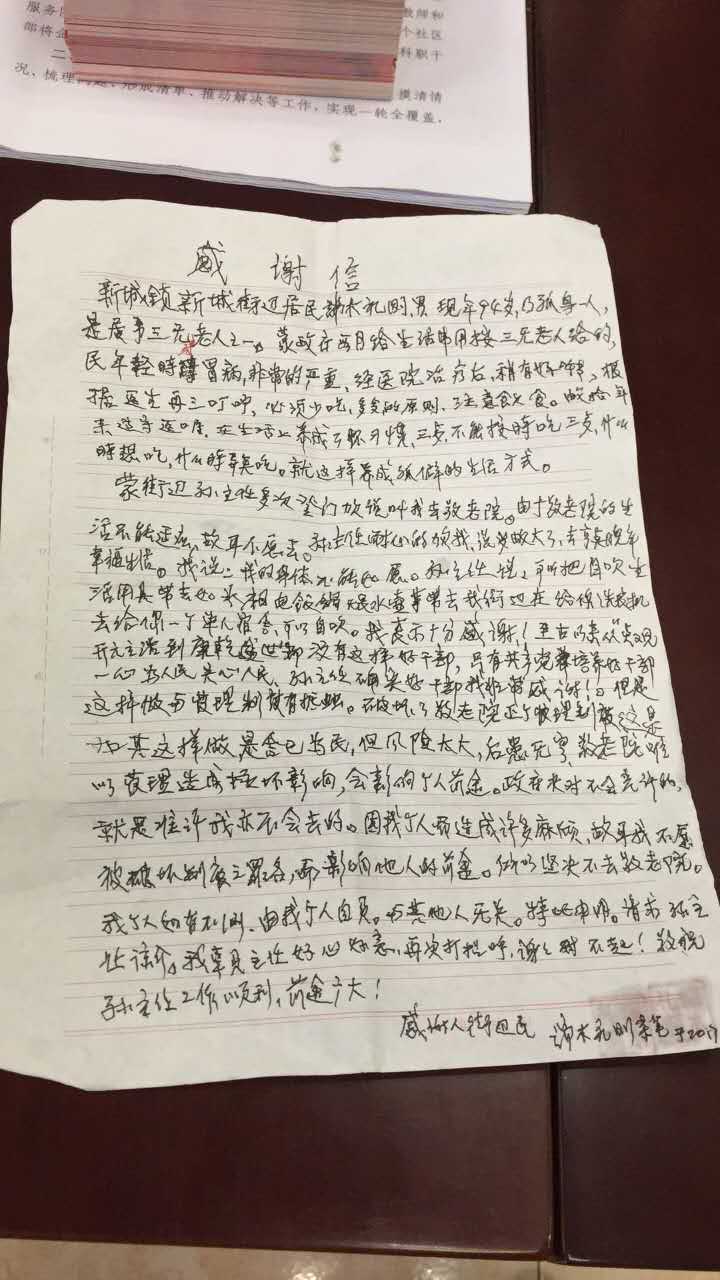 服务
教师和
部将
个社区
二
科职干
摸清情
况、梳理问题、形成清单、推动解决等工作，实现一轮全覆盖，
感谢信
新城镇新城街边居民 木礼明，男 现年94岁，乃孤身一人，
是居事三无老人之一。蒙政府每月给生活费用按三无老人给的，
民年轻时 胃病，非常的严重，经医院治疗后，稍有好转，根
据医生再三叮咛，必须少吃、多食的原则，注意饮食。
来遵守医嘱，在生活上养成了坏习惯，三点不能按时吃三点，什么
时想吃，什么时弄吃。就这样养成孤僻的生活方式。
蒙街边孙主任多次登门放说叫我去敬老院。由于敬老院的生
活不能适应，故耳不愿去。孙主任耐心的 我，说岁数大了，去享受晚年
幸福生活。我说：我的身体不能如愿。孙主任说，可以把自吹生
活用具带去如 电饭锅 水壶等带去我街边在给你洗衣机
去给你一个单人宿舍，可以自吹。我表示十分感谢！ 古以来从“贞观
开元主治到康乾盛世都没有这样好干部，只有共产党 培养好干部
一心为人民关心人民，孙主任确实好干部我非常感谢！但是
这样做与管理制度有抵触。破坏了敬老院正个管理制度这是
其这样做是否已为民，但风险太大，后患无穷，敬老院难
以管理造成极坏影响，会影响个人前途。政府决对不会允许的，
就是准许我亦不会去的。因我个人而造成许多麻烦，故耳我不愿
被破坏制度之罪名，而影响他人的前途。所以坚决不去敬老院。
我个人如有不测，由我个人自负。与其他人无关。特此申明。请求孙主
任谅介，我辜负主任好心好意，再次打招呼，谢谢对不起！敬祝
孙主任工作顺利，前途广大！
感谢人街边民 木礼明亲笔于2017